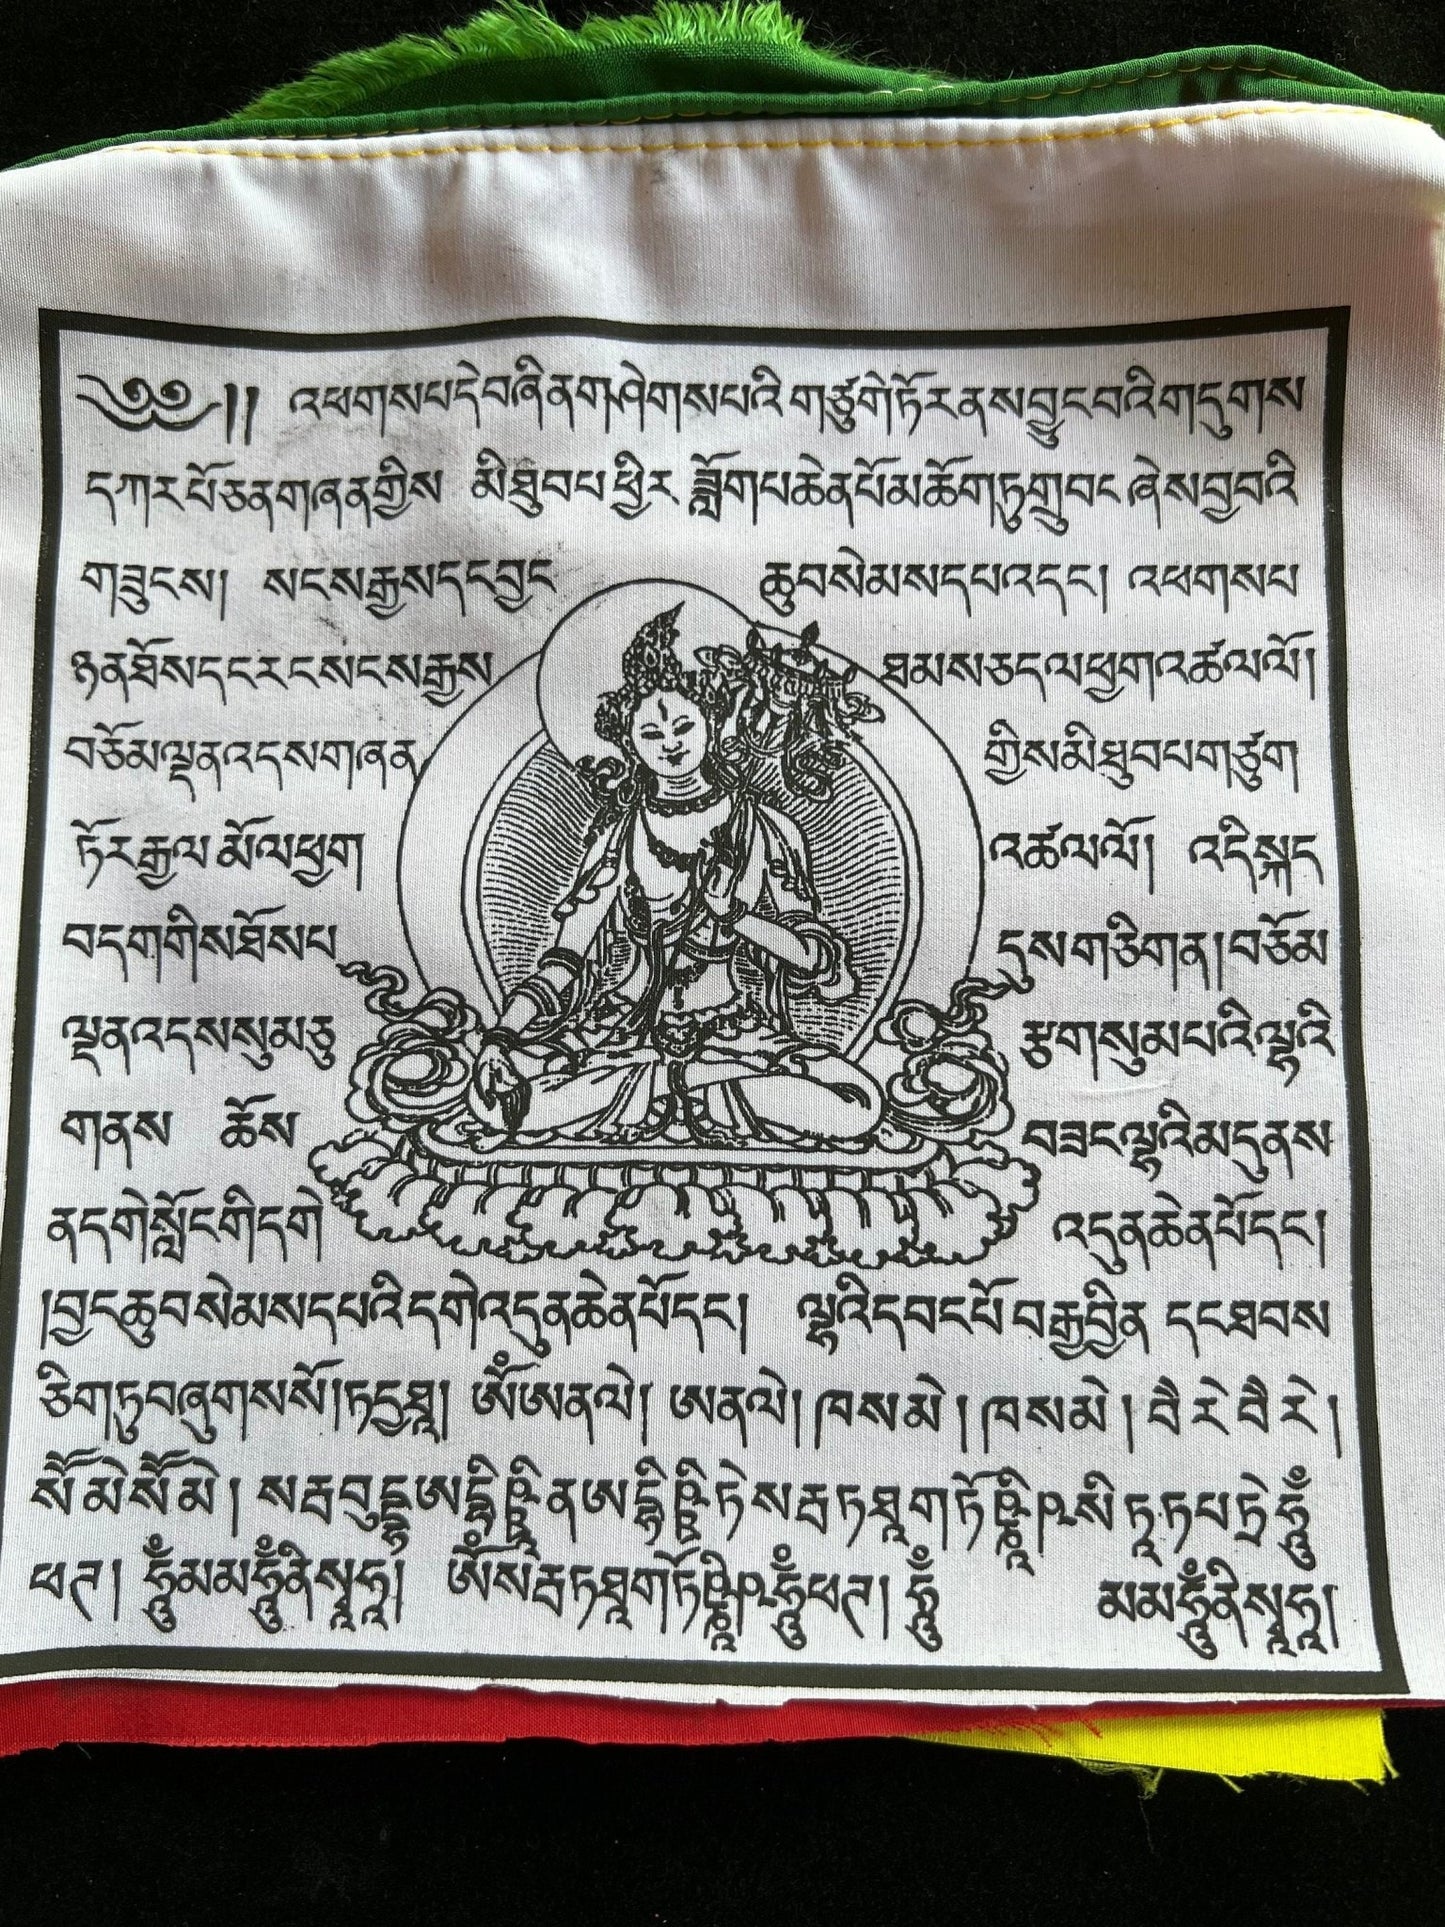 ༄༅།། འཕགས་པ་དེ་བཞིན་གཤེགས་པའི་གཙུག་ཏོར་ནས་བྱུང་བའི་གདུགས
དཀར་པོ་ཅན་གཞན་གྱིས མི་ཐུབ་པ་ཕྱིར་ཟློག་པ་ཆེན་པོ་མཆོག་ཏུ་གྲུབ་ཅེས་བྱ་བའི
གཟུངས། སངས་རྒྱས་དང་བྱང ཆུབ་སེམས་དཔའ་དང༌། འཕགས་པ
ཉན་ཐོས་དང་རང་སངས་རྒྱས ཐམས་ཅད་ལ་ཕྱག་འཚལ་ལོ།
བཅོམ་ལྡན་འདས་གཞན གྱིས་མི་ཐུབ་པ་གཙུག
ཏོར་རྒྱལ་མོ་ལ་ཕྱག འཚལ་ལོ། འདི་སྐད
བདག་གིས་ཐོས་པ དུས་གཅིག་ན། བཅོམ
ལྡན་འདས་སུམ་ཅུ རྩ་གསུམ་པའི་ལྷའི
གནས ཆོས བཟང་ལྷའི་མདུནས
ན་དགེ་སློང་གི་དགེ འདུན་ཆེན་པོ་དང༌།
།བྱང་ཆུབ་སེམས་དཔའི་དགེ་འདུན་ཆེན་པོ་དང༌། ལྷའི་དབང་པོ་བརྒྱ་བྱིན་དང་ཐབས
ཅིག་ཏུ་བཞུགས་སོ། །ཏདྱ་ཐཱ། ཨོཾ་ཨ་ན་ལེ། ཨ་ན་ལེ། ཁ་ས་མེ། ཁ་ས་མེ། བཻ་རེ་བཻ་རེ།
སཽ་མེ་སཽ་མེ། སརྦ་བུདྡྷ་ཨ་དྷིཥྛི་ན་ཨ་དྷིཥྛི་ཏེ་སརྦ་ཏ་ཐཱ་ག་ཏོཥྞཱི་ཥ་སི་ཏཱ་ཏ་པ་ཏྲེ་ཧཱུྃ
ཕཊ། ཧཱུྃ་མ་མ་ཧཱུྃ་ནི་སྭཱ་ཧཱ། ཨོཾ་སརྦ་ཏ་ཐཱ་ག་ཏོཥྞཱི་ཥ་ཧཱུྃ་ཕཊ། ཧཱུྃ མ་མ་ཧཱུྃ་ནི་སྭཱ་ཧཱ།